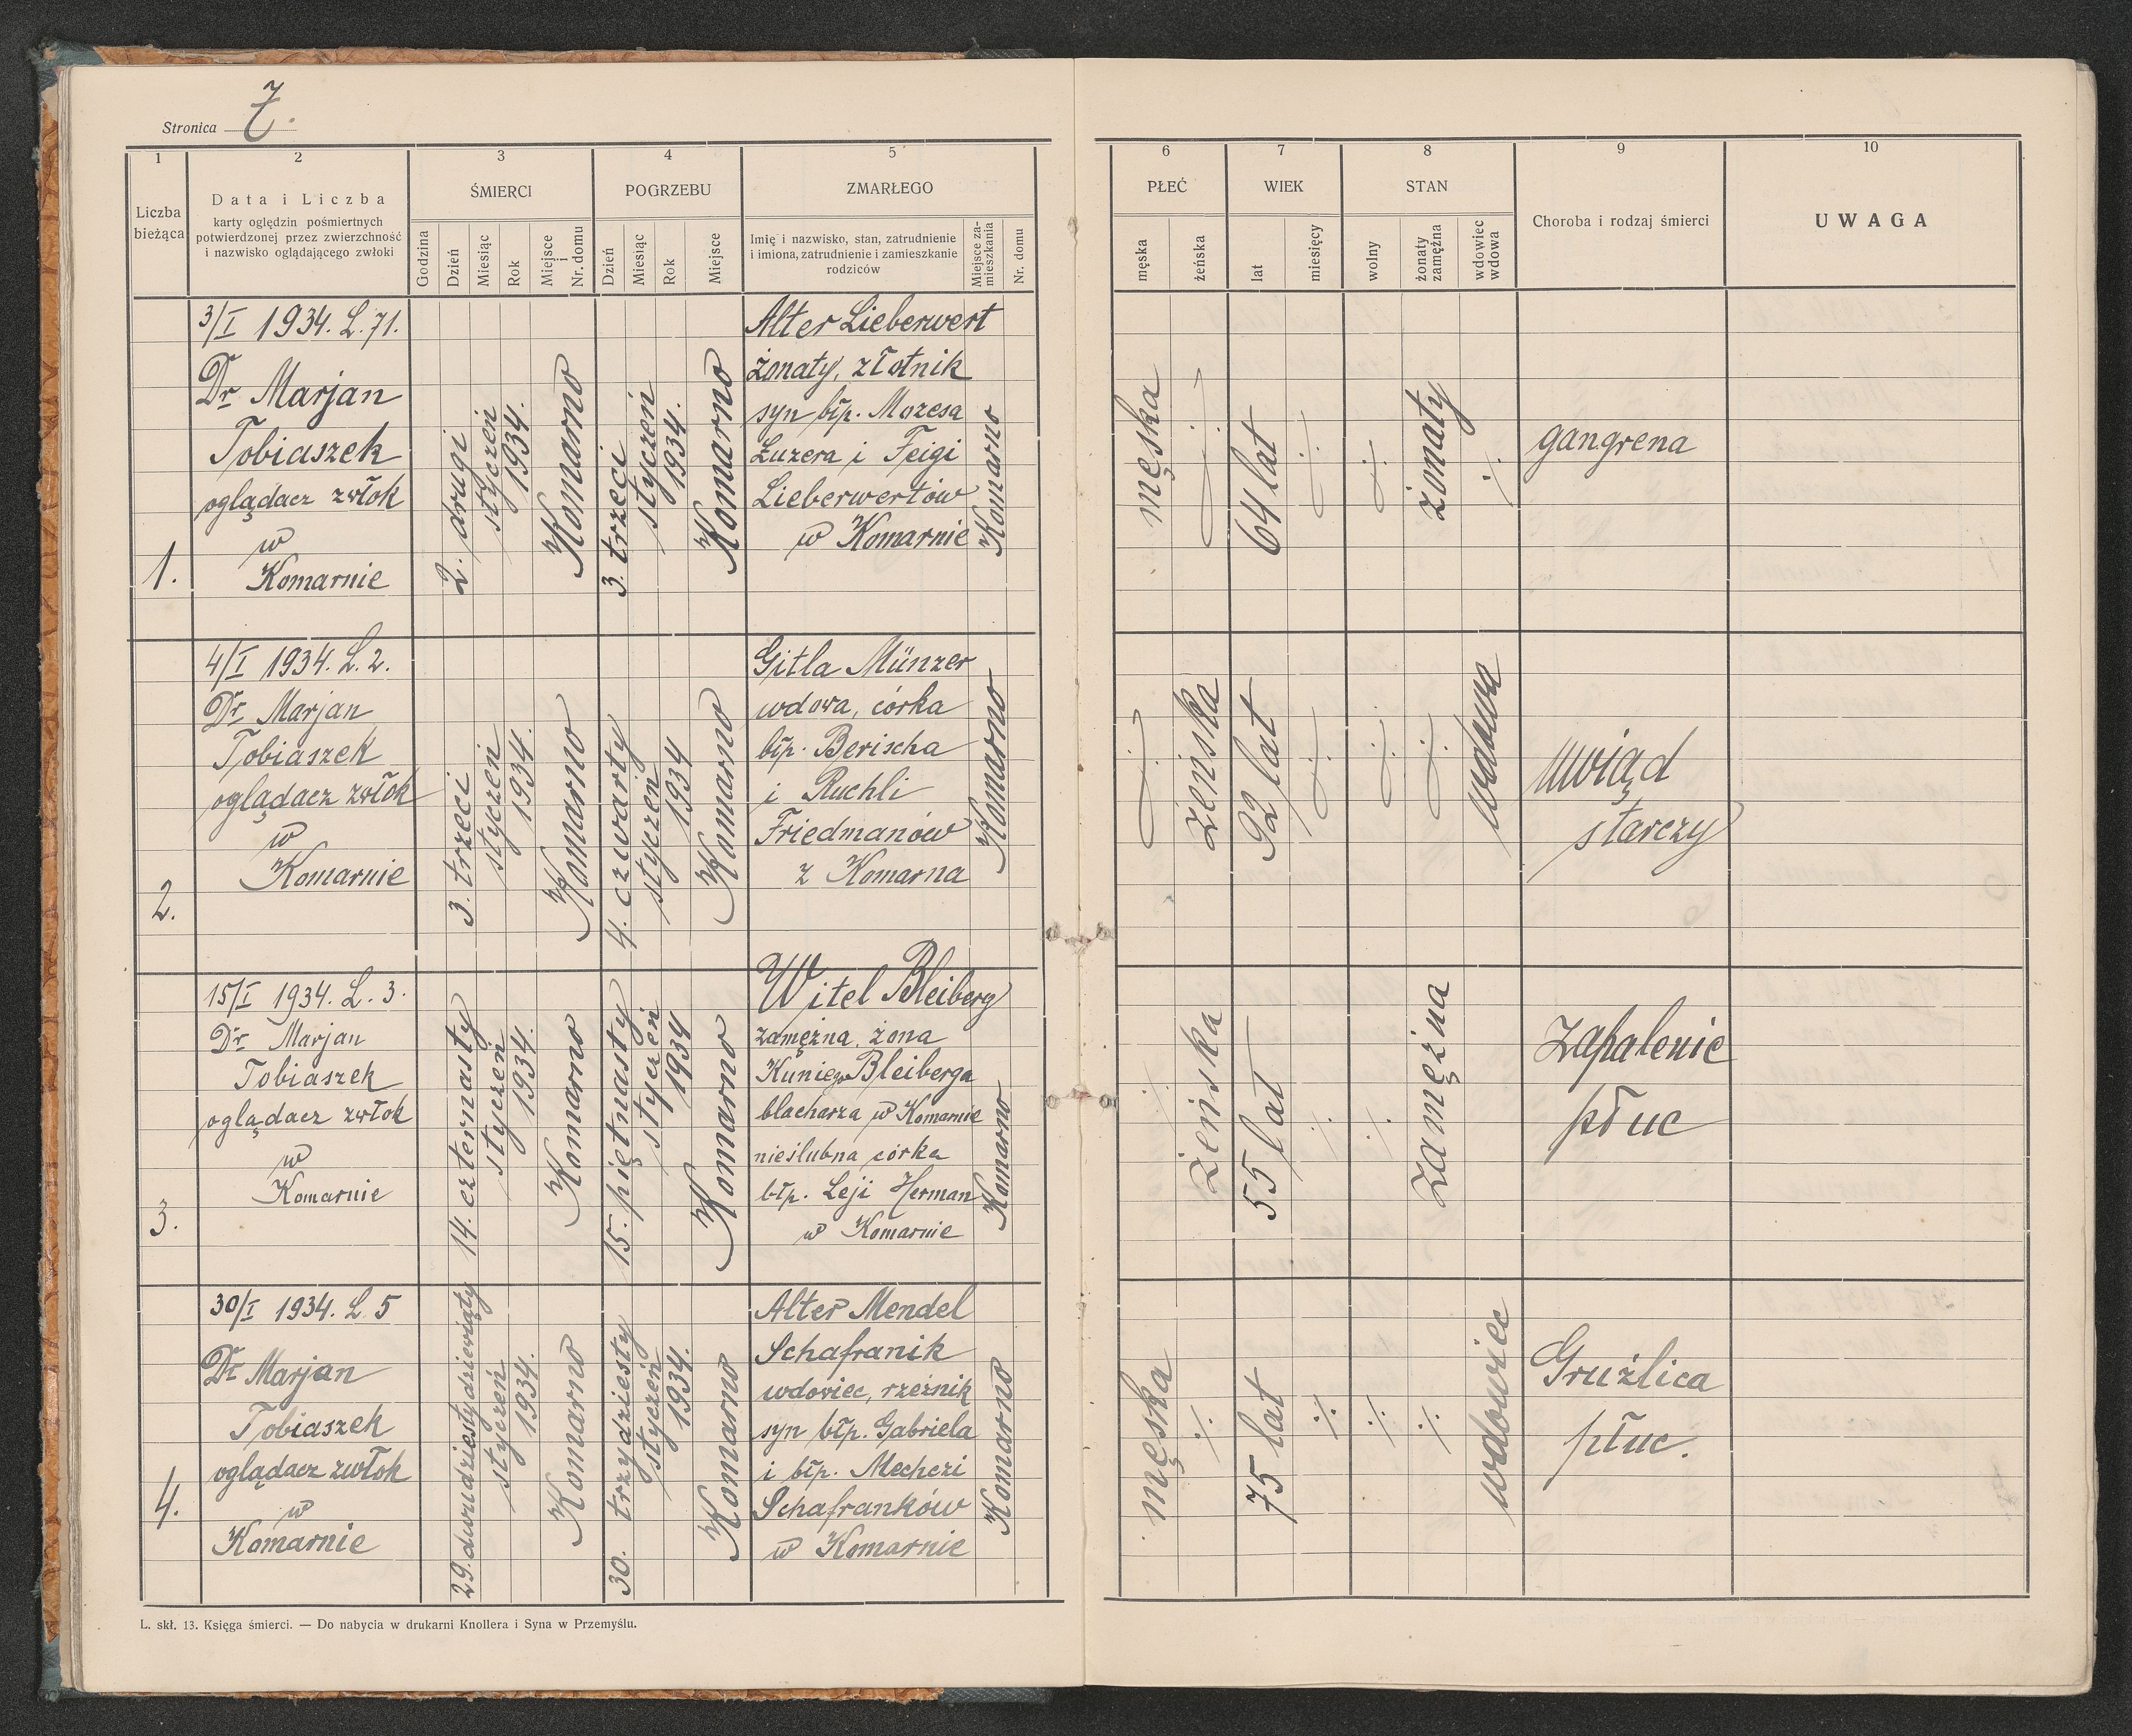 Stronica 7.
1
2
3
4
5
6
7
8
9
10
Liczba
bieżąca
Data i Liczba
karty oględzin pośmiertnych
potwierdzonej przez zwierzchność
i nazwisko oglądającego zwłoki
ŚMIERCI
Godzina
Dzień
Miesiąc
Rok
Miejsce
i
Nr. domu
POGRZEBU
Dzień
Miesiąc
Rok
Miejsce
ZMARŁEGO
Imię i nazwisko, stan, zatrudnienie
i imiona, zatrudnienie i zamieszkanie
rodziców
Miejsce za-
mieszkania
Nr. domu
PŁEĆ
męska
żeńska
WIEK
lat
miesięcy
STAN
wolny
żonaty
zamężna
wdowiec
wdowa
Choroba i rodzaj śmierci
UWAGA
1.
3/I 1934. L. 71.
Dr Marjan
Tobiaszek
oglądacz zwłok
w
Komarnie
2. drugi
styczeń
1934.
Komarno
3. trzeci
styczeń
1934.
Komarno
Alter Lieberwert
żonaty, złotnik
syn błp. Mozesa
Luzera i Feigi
Lieberwertów
w Komarnie
Komarno
męska
·/·
64 lat
·/·
·/·
żonaty
·/·
gangrena
2.
4/I 1934. L. 2.
Dr Marjan
Tobiaszek
oglądacz zwłok
w
Komarnie
3. trzeci
styczeń
1934.
Komarno
4. czwarty
styczeń
1934
Komarno
Gitla Münzer
wdowa, córka
błp. Berischa
i Ruchli
Friedmanów
z Komarna
Komarno
·/·
żeńska
92 lat
·/·
·/·
·/·
wdowa
Uwiąd
starczy
3.
15/I 1934. L. 3.
Dr Marjan
Tobiaszek
oglądacz zwłok
w
Komarnie
14. czternasty
styczeń
1934.
Komarno
15. piętnasty
styczeń
1934
Komarno
Witel Bleiberg
zamężna, żona
Kuniego Bleiberga
blacharza w Komarnie
nieślubna córka
błp. Leji Herman
w Komarnie
Komarno
·/·
żeńska
55 lat
·/·
·/·
zamężna
Zapalenie
płuc
4.
30/I 1934. L. 5
Dr Marjan
Tobiaszek
oglądacz zwłok
w
Komarnie
29. dwudziestydziewiąty
styczeń
1934.
Komarno
30. trzydziesty
styczeń
1934.
Komarno
Alter Mendel
Schafranik
wdowiec, rzeźnik
syn błp. Gabriela
i błp. Mechczi
Schafranków
w Komarnie
Komarno
męska
·/·
75 lat
·/·
·/·
·/·
wdowiec
Gruźlica
płuc.
L. skł. 13. Księga śmierci. — Do nabycia w drukarni Knollera i Syna w Przemyślu.